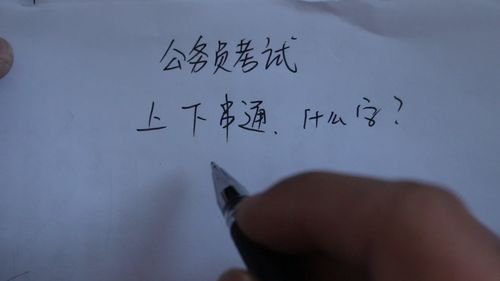 公务员考试
上下串通、什么字?